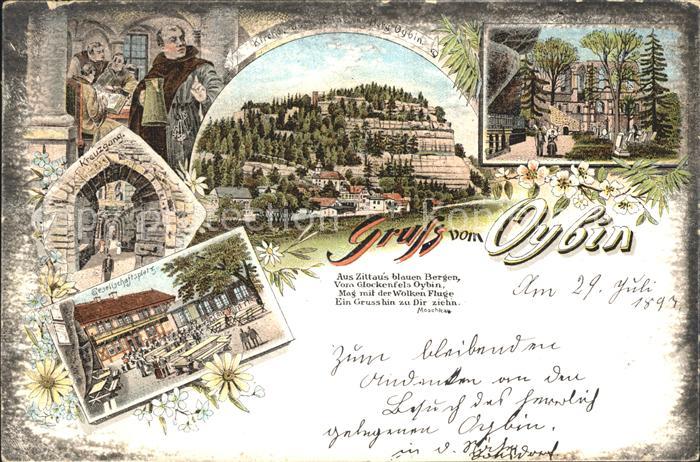 Kirche
Oybin.
Kreuzgang
Gesellschaftsplatz
Gruss vom Oybin
Aus Zittau's blauen Bergen,
Vom Glockenfels Oybin,
Mag mit der Wolken Fluge
Ein Gruss hin zu Dir ziehn.
Moschkau
Am 29. Juli
1897
Zum bleibenden
Andenken an den
Besuch des herrlich
gelegenen Oybin.
in d.